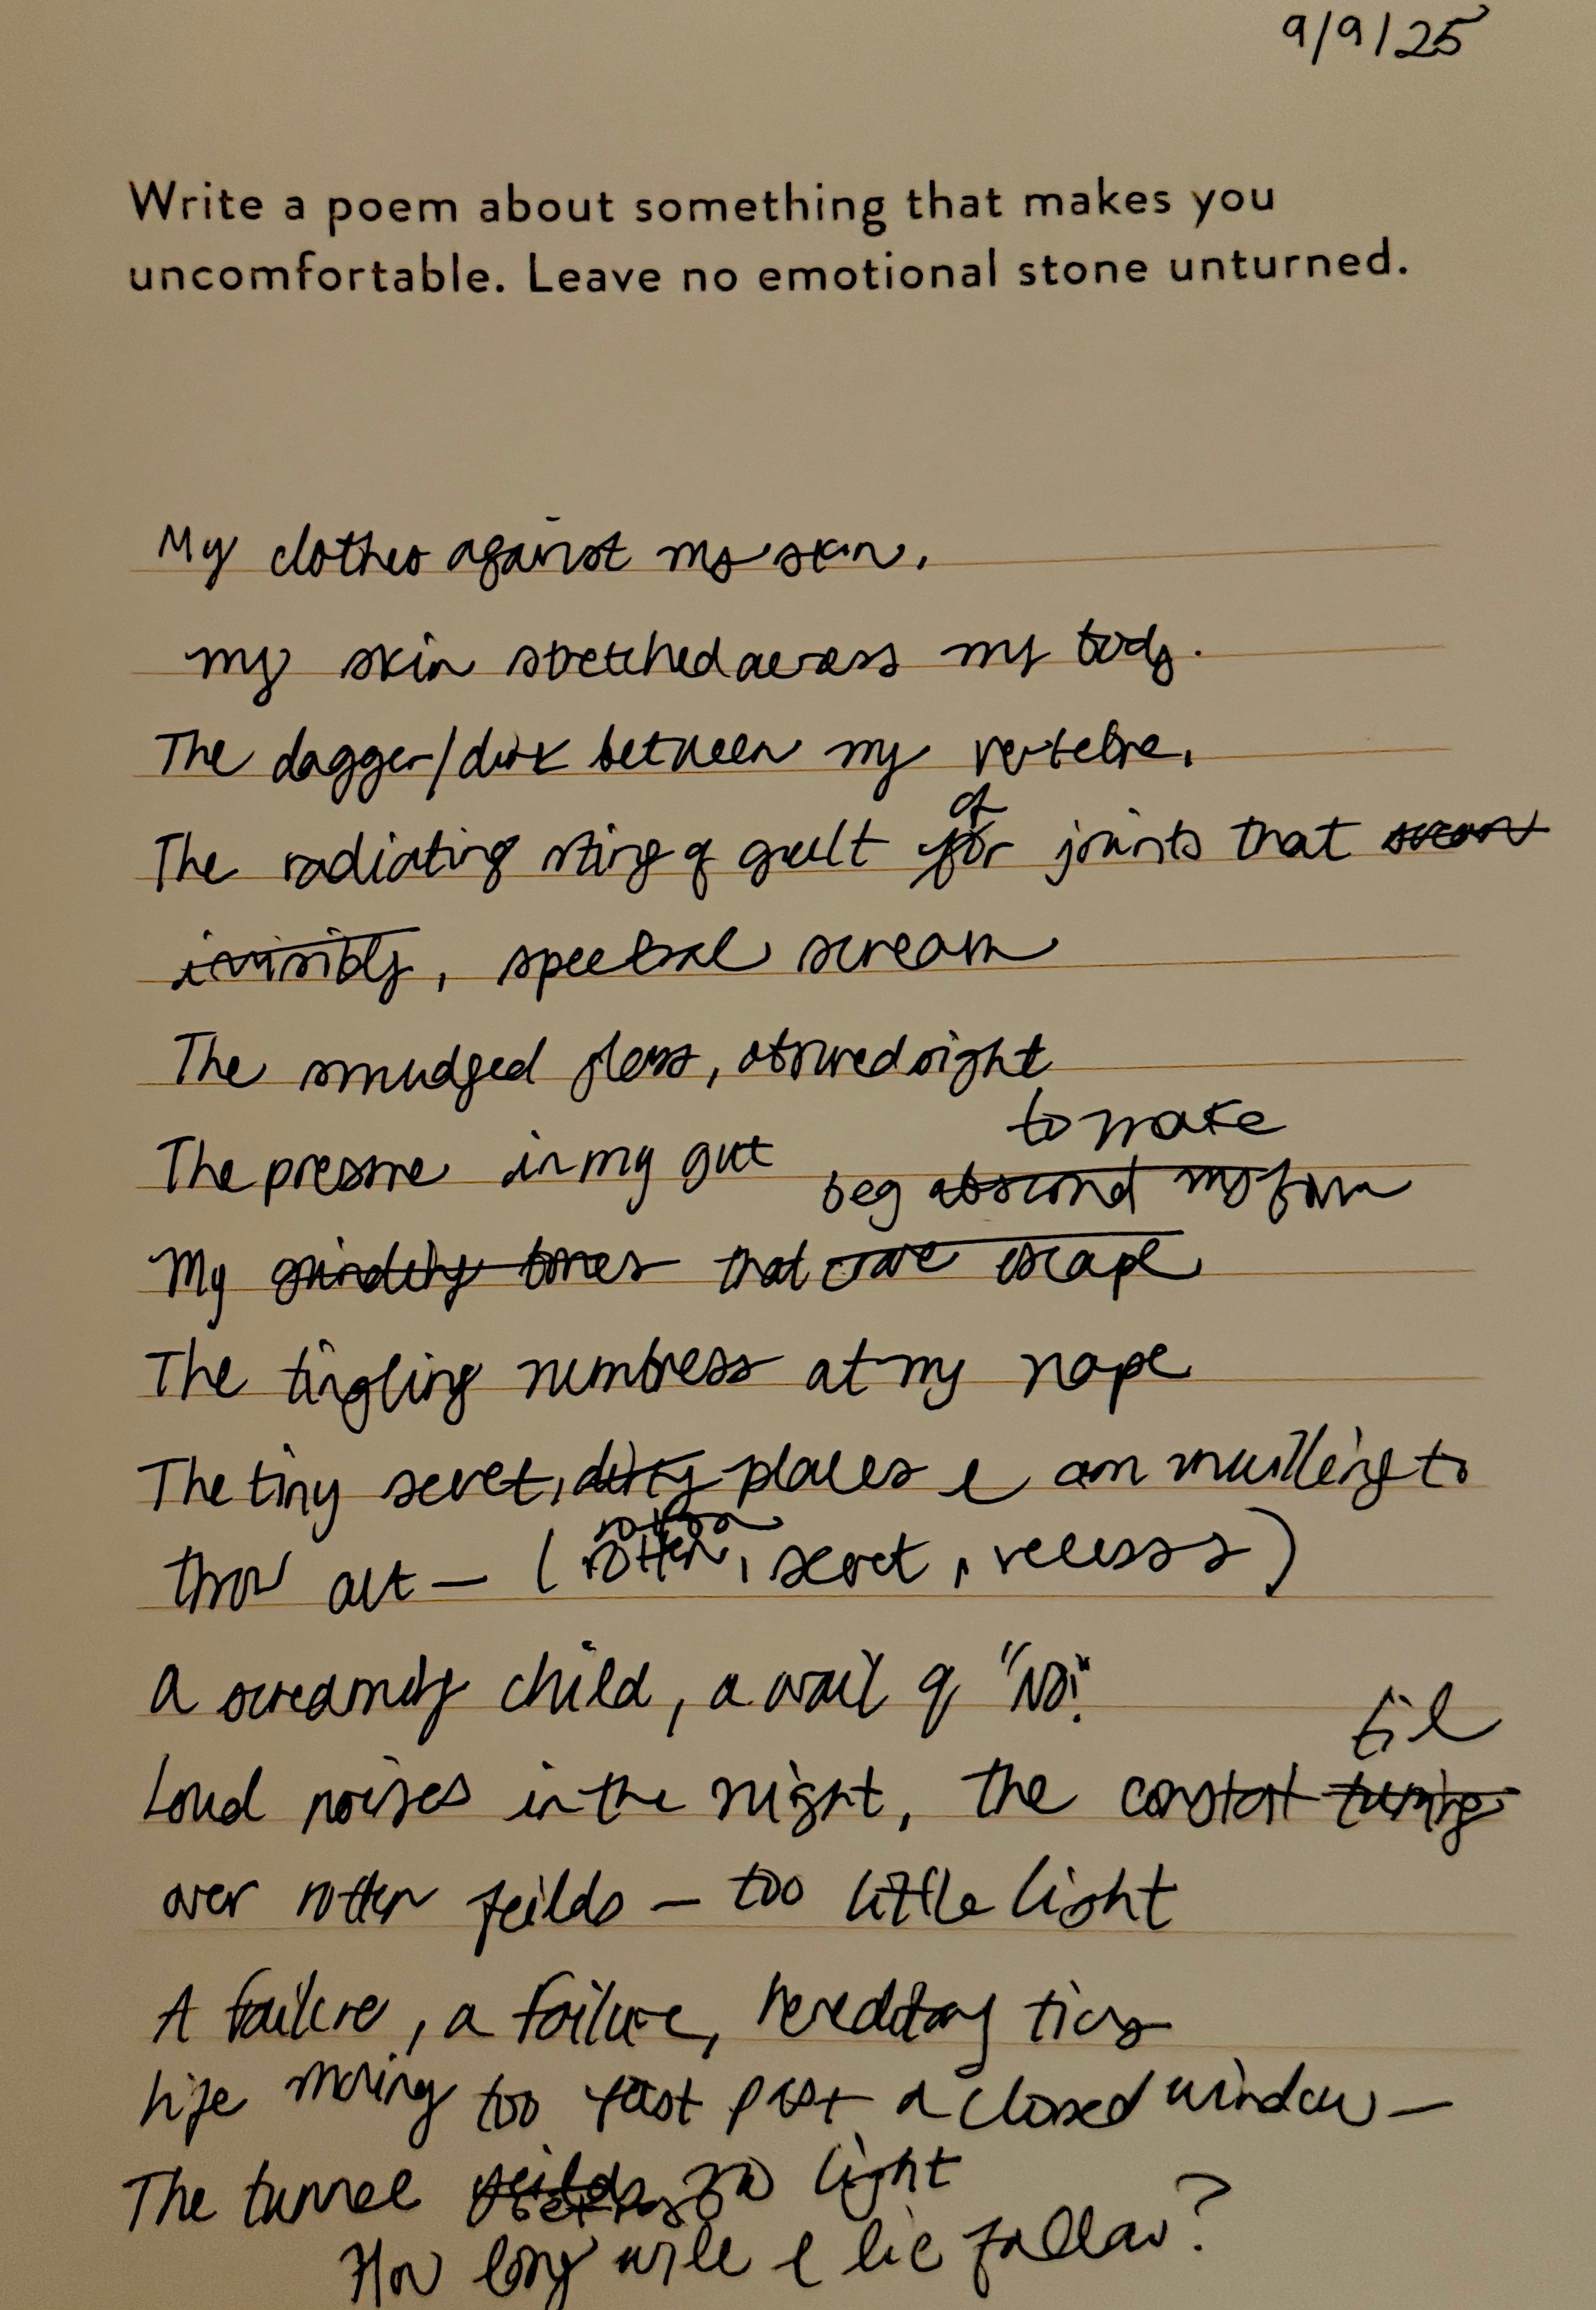 9/9/25
Write a poem about something that makes you
uncomfortable. Leave no emotional stone unturned.
My clothes against my skin,
my skin stretched across my body.
The dagger/dirk between my vertebre,
of
The radiating sting of guilt for joints that scream
invisibly, spectral scream
The smudged glass, obscured sight
to make
The pressure in my gut
beg abscond my form
My grinding bones that crave escape
The tingling numbness at my nape
The tiny secret, dirty places I am unwilling to
rotten
throw out – (rotten, secret, recesses)
A screaming child, a wail of "No!"
til
Loud noises in the night, the constant turning
over rotten feilds – too little light
A failure, a failure, hereditary tics
Life moving too fast past a closed window –
The tunnel no light
How long will I lie fallow?